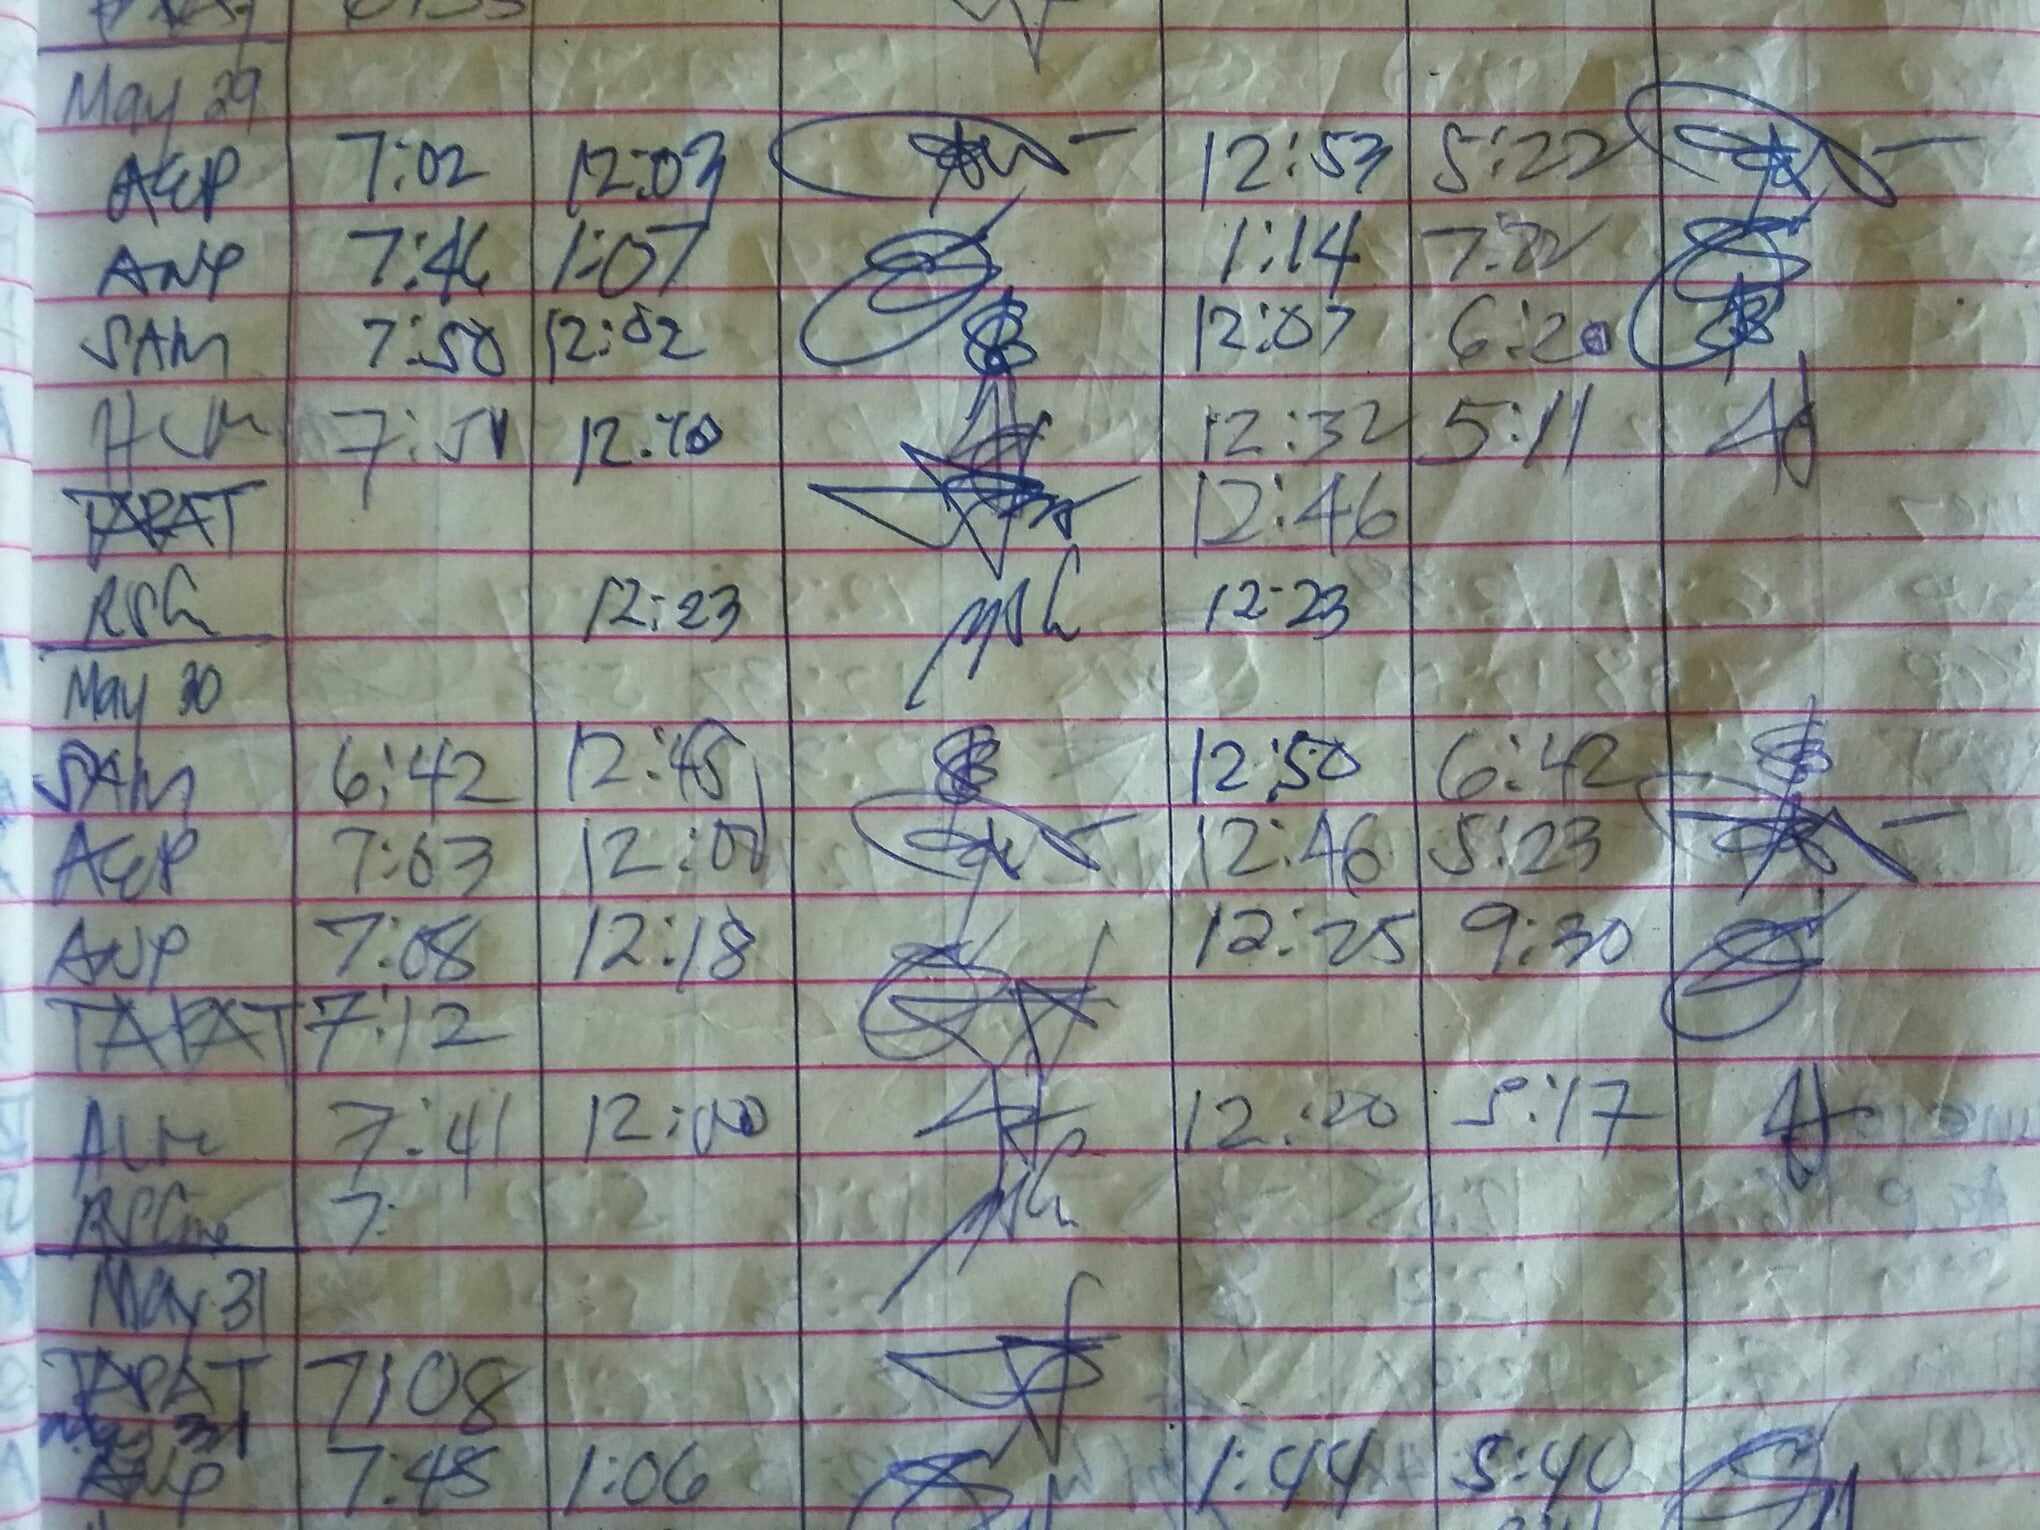 May 29
AEP 7:02 12:03 12:53 5:22
ANP 7:46 1:07 1:14
SAM 7:50 12:02 12:07 6:20
12:32 5:11
TAPAT 12:46
RSG 12:23 12:23
May 30
SAM 6:42 12:45 12:50 6:42
AEP 7:03 12:00 12:46 5:23
ANP 7:08 12:18 12:25 9:30
TAPAT 7:12
ALM 7:41 12:00 12:20 5:17
7:
May 31
TAPAT 7:08
May 31
ANP 7:45 1:06 1:44 5:40